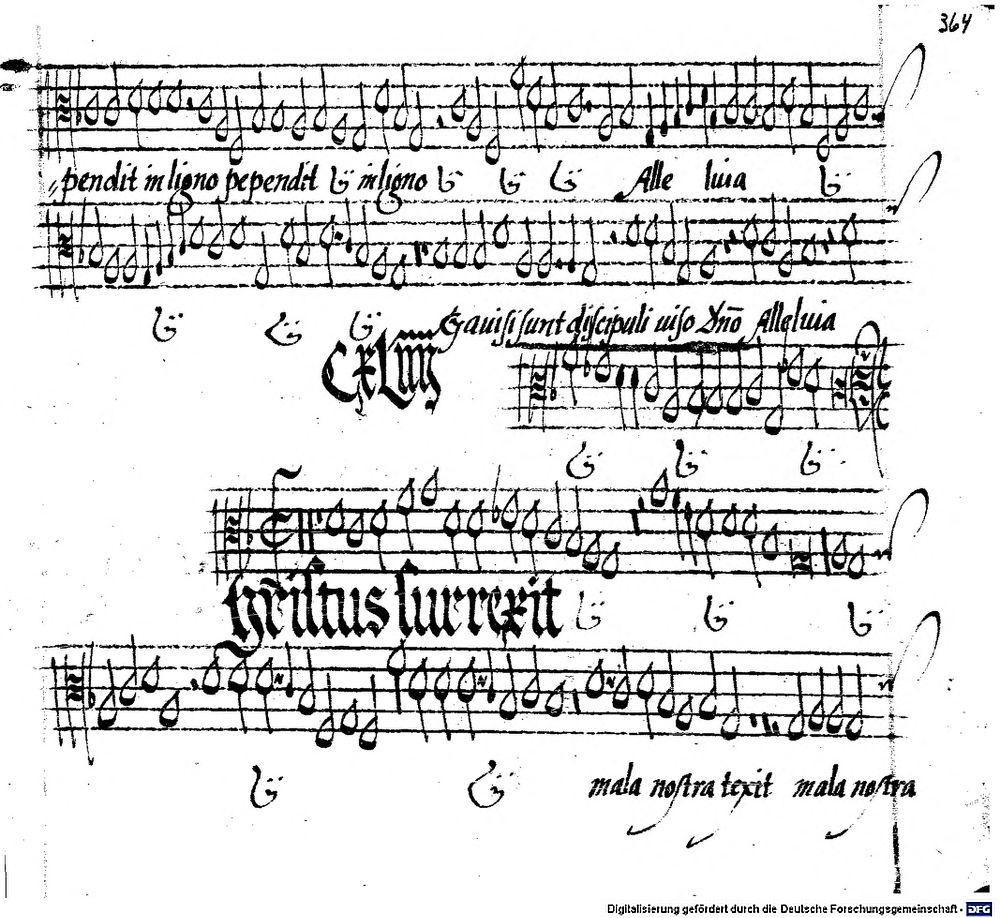 364
pendit in ligno pependit in ligno Alle luia
Gauisi sunt discipuli uiso Dño Alleluia
CXLIIII
Christus surrexit
mala nostra texit mala nostra
Digitalisierung gefördert durch die Deutsche Forschungsgemeinschaft - DFG